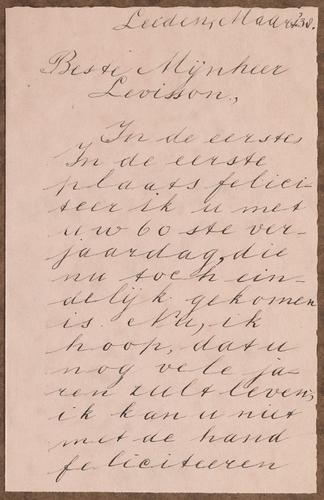 Leiden, Maart '38.
Beste Mijnheer
Levisson,
In de eerste
In de eerste
plaats felici-
teer ik u met
uw 60 ste ver-
jaardag, die
nu toch ein-
delijk gekomen
is. Nu, ik
hoop, dat u
nog vele ja-
ren zult leven,
ik kan u niet
met de hand
feliciteeren